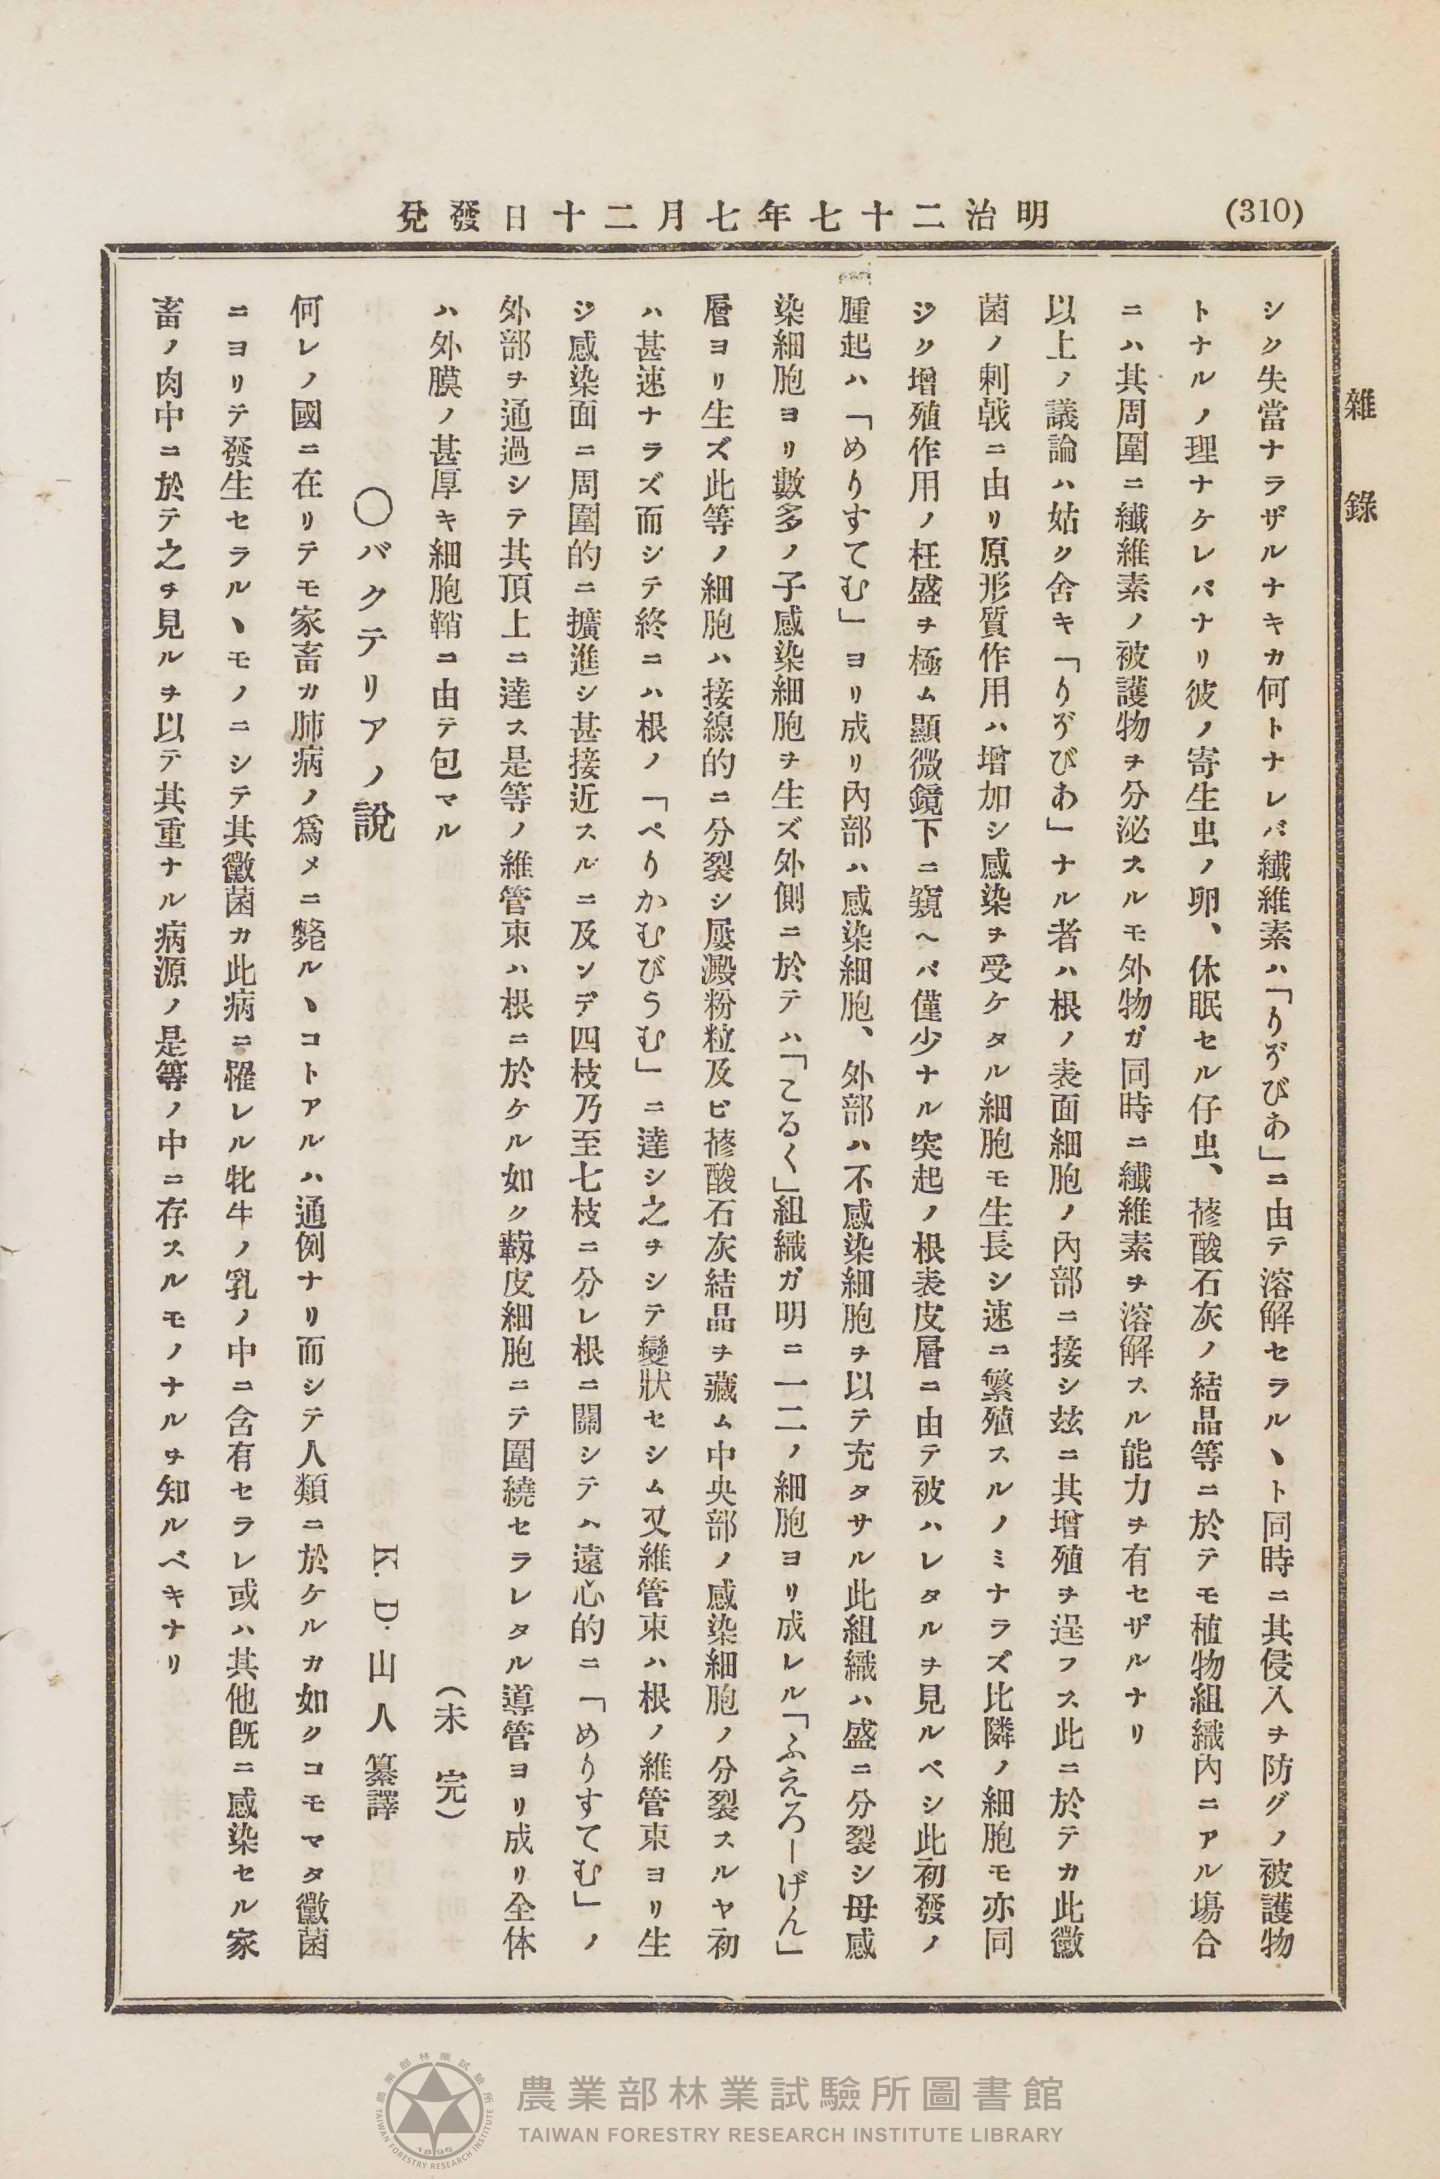 (310)
明治二十七年七月二十日發兌
雜錄
シク失當ナラザルナキカ何トナレバ纖維素ハ「りぞびあ」ニ由テ溶解セラルヽト同時ニ其侵入ヲ防グノ被護物
トナルノ理ナケレバナリ彼ノ寄生虫ノ卵、休眠セル仔虫、蓚酸石灰ノ結晶等ニ於テモ植物組織內ニアル塲合
ニハ其周圍ニ纖維素ノ被護物ヲ分泌スルモ外物ガ同時ニ纖維素ヲ溶解スル能力ヲ有セザルナリ
以上ノ議論ハ姑ク舍キ「りぞびあ」ナル者ハ根ノ表面細胞ノ內部ニ接シ玆ニ其增殖ヲ逞フス此ニ於テカ此黴
菌ノ刺戟ニ由リ原形質作用ハ增加シ感染ヲ受ケタル細胞モ生長シ速ニ繁殖スルノミナラズ比隣ノ細胞モ亦同
ジク增殖作用ノ枉盛ヲ極ム顯微鏡下ニ窺ヘバ僅少ナル突起ノ根表皮層ニ由テ被ハレタルヲ見ルベシ此初發ノ
腫起ハ「めりすてむ」ヨリ成リ內部ハ感染細胞、外部ハ不感染細胞ヲ以テ充タサル此組織ハ盛ニ分裂シ母感
染細胞ヨリ數多ノ子感染細胞ヲ生ズ外側ニ於テハ「こるく」組織ガ明ニ一二ノ細胞ヨリ成レル「ふえろーげん」
層ヨリ生ズ此等ノ細胞ハ接線的ニ分裂シ屢澱粉粒及ビ蓚酸石灰結晶ヲ藏ム中央部ノ感染細胞ノ分裂スルヤ初
ハ甚速ナラズ而シテ終ニハ根ノ「ペりかむびうむ」ニ達シ之ヲシテ變狀セシム又維管束ハ根ノ維管束ヨリ生
ジ感染面ニ周圍的ニ擴進シ甚接近スルニ及ンデ四枝乃至七枝ニ分レ根ニ關シテハ遠心的ニ「めりすてむ」ノ
外部ヲ通過シテ其頂上ニ達ス是等ノ維管束ハ根ニ於ケル如ク靱皮細胞ニテ圍繞セラレタル導管ヨリ成リ全体
ハ外膜ノ甚厚キ細胞鞘ニ由テ包マル
（未完）
〇バクテリアノ說
K. D. 山人纂譯
何レノ國ニ在リテモ家畜カ肺病ノ爲メニ斃ルヽコトアルハ通例ナリ而シテ人類ニ於ケルカ如クコモマタ黴菌
ニヨリテ發生セラルヽモノニシテ其黴菌カ此病ニ罹レル牝牛ノ乳ノ中ニ含有セラレ或ハ其他旣ニ感染セル家
畜ノ肉中ニ於テ之ヲ見ルヲ以テ其重ナル病源ノ是等ノ中ニ存スルモノナルヲ知ルベキナリ
農業部林業試驗所圖書館
TAIWAN FORESTRY RESEARCH INSTITUTE LIBRARY
農業部林業試驗所
1896
TAIWAN FORESTRY RESEARCH INSTITUTE